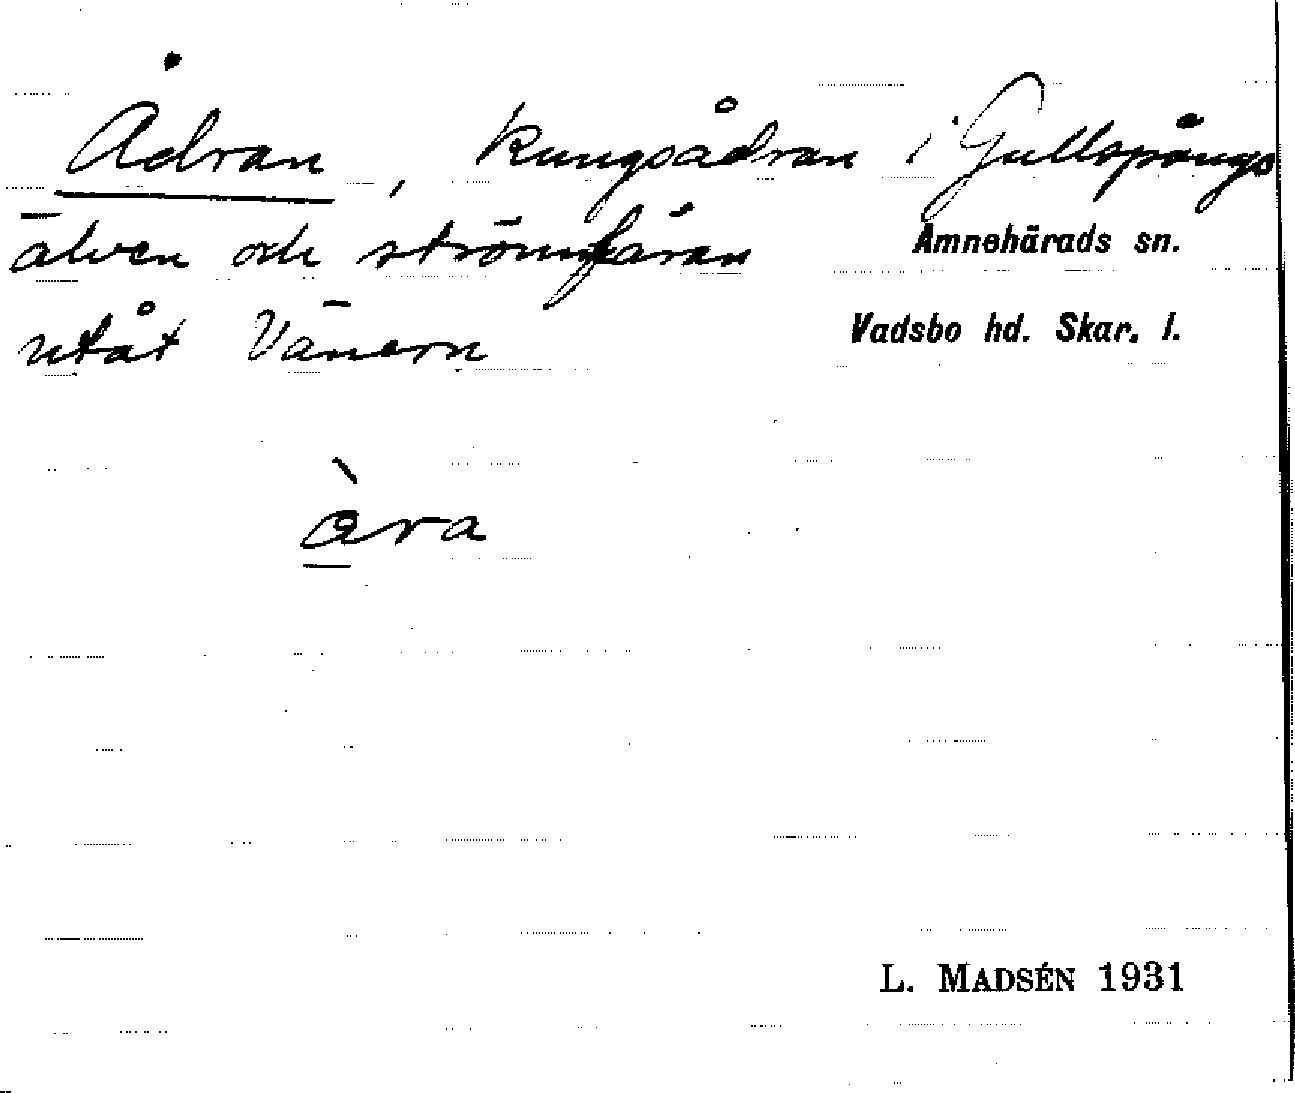 Ådran, Kungsådran i Gullspångs
älven och strömfåran
Amnehärads sn.
utåt Vänern
Vadsbo hd. Skar. l.
àra
L. MADSÉN 1931